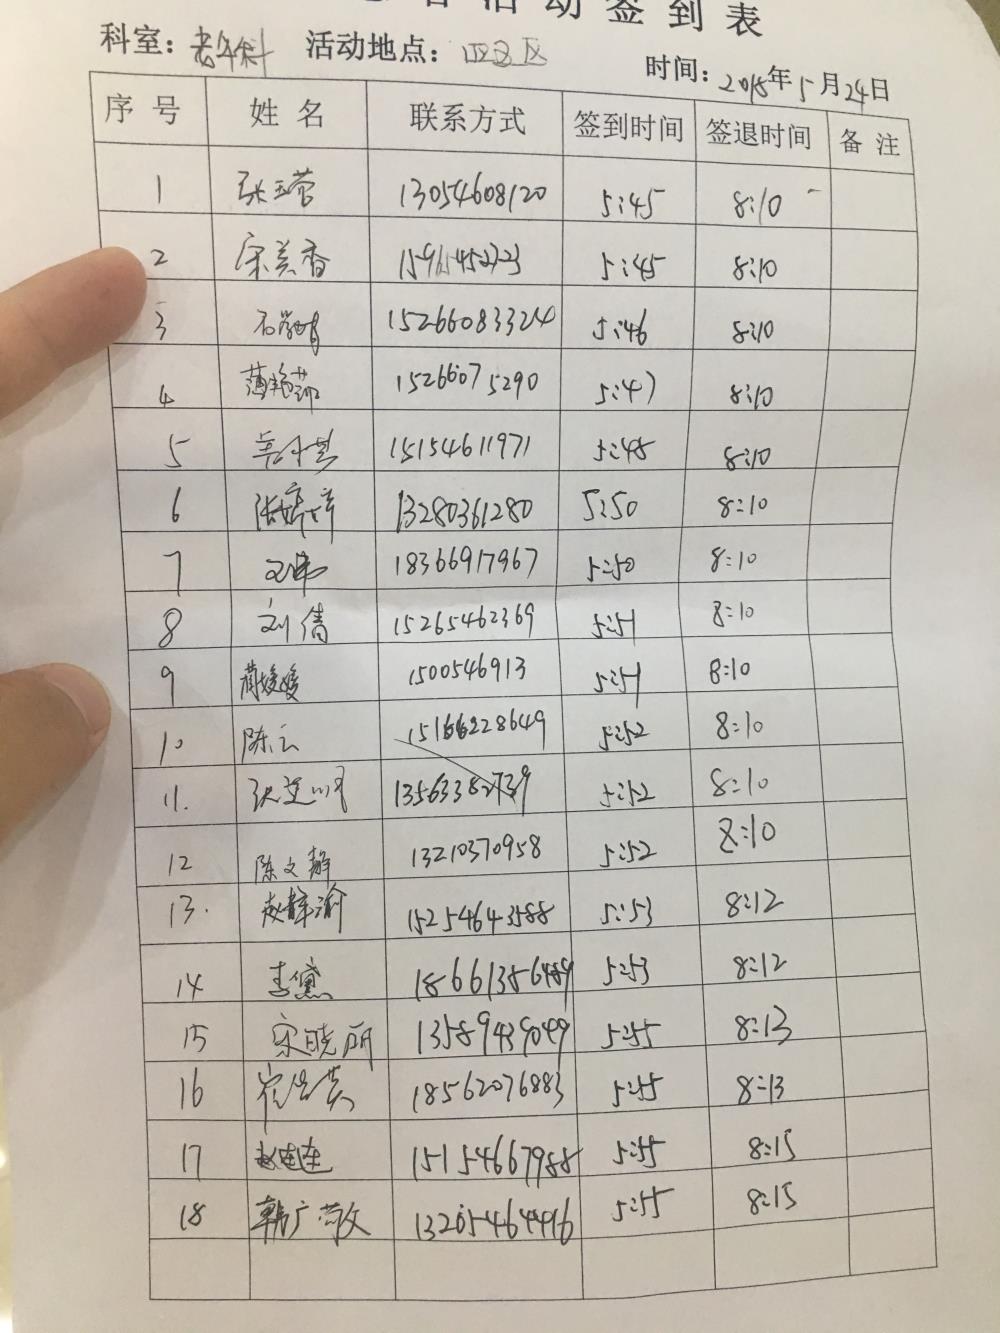 活动签到表
科室：老年科 活动地点：四五区 时间：2018年5月24日
序号 姓名 联系方式 签到时间 签退时间 备注
1 张玉营 13054608120 5:45 8:10
2 宋美香 15965452323 5:45 8:10
3 15266083324 5:46 8:10
4 薄艳茹 15266075290 5:47 8:10
5 15154611971 5:48 8:10
6 张婷婷 13280361280 5:50 8:10
7 18366917967 5:50 8:10
8 刘倩 15265462369 5:51 8:10
9 蔺媛媛 1500546913 5:51 8:10
10 陈云 15166228649 5:52 8:10
11. 5:52 8:10
12 陈文静 13210370958 5:52 8:10
13. 赵静渝 15254643588 5:53 8:12
14 李黛 18661386489 5:53 8:12
15 宋晓丽 13589439049 5:55 8:13
16 18562076883 5:55 8:13
17 赵连连 15154667988 5:55 8:15
18 韩广敬 13205464496 5:55 8:15